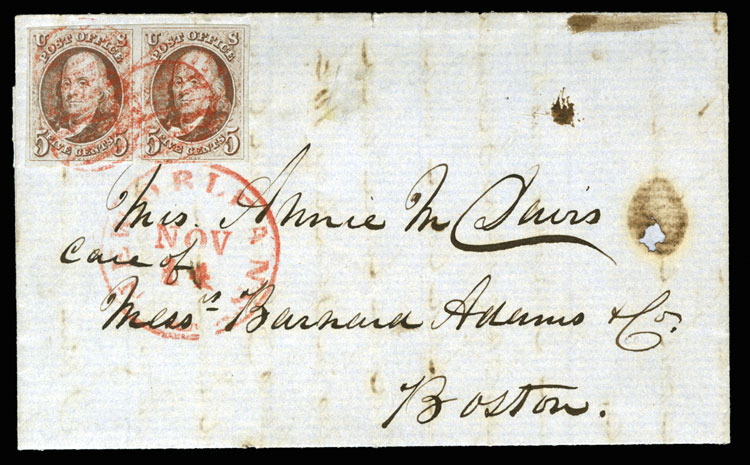 U S U S
POST OFFICE POST OFFICE
5 5 5 5
FIVE CENTS FIVE CENTS
NEW ORLEANS
NOV
Mrs. Annie M Davis
Care of
Messrs Barnard Adams & Co.
Boston.